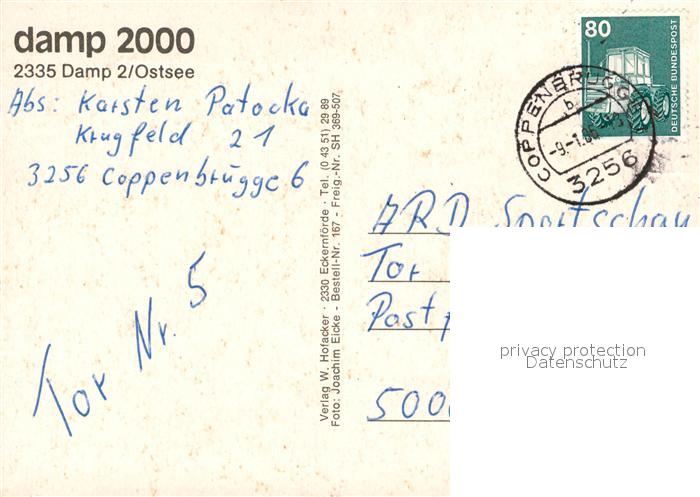 damp 2000
2335 Damp 2/Ostsee
Abs: Karsten Patocka
Krugfeld 21
3256 Coppenbrügge 6
Tor Nr. 5
Verlag W. Hofacker · 2330 Eckernförde · Tel. (0 43 51) 29 89
Foto: Joachim Eicke - Bestell-Nr. 167 - Freig.-Nr. SH 369-507
80
DEUTSCHE BUNDESPOST
COPPENBRÜGGE
b
-9.-1.86
3256
ARD Sportschau
Tor
Post
500
privacy protection
Datenschutz